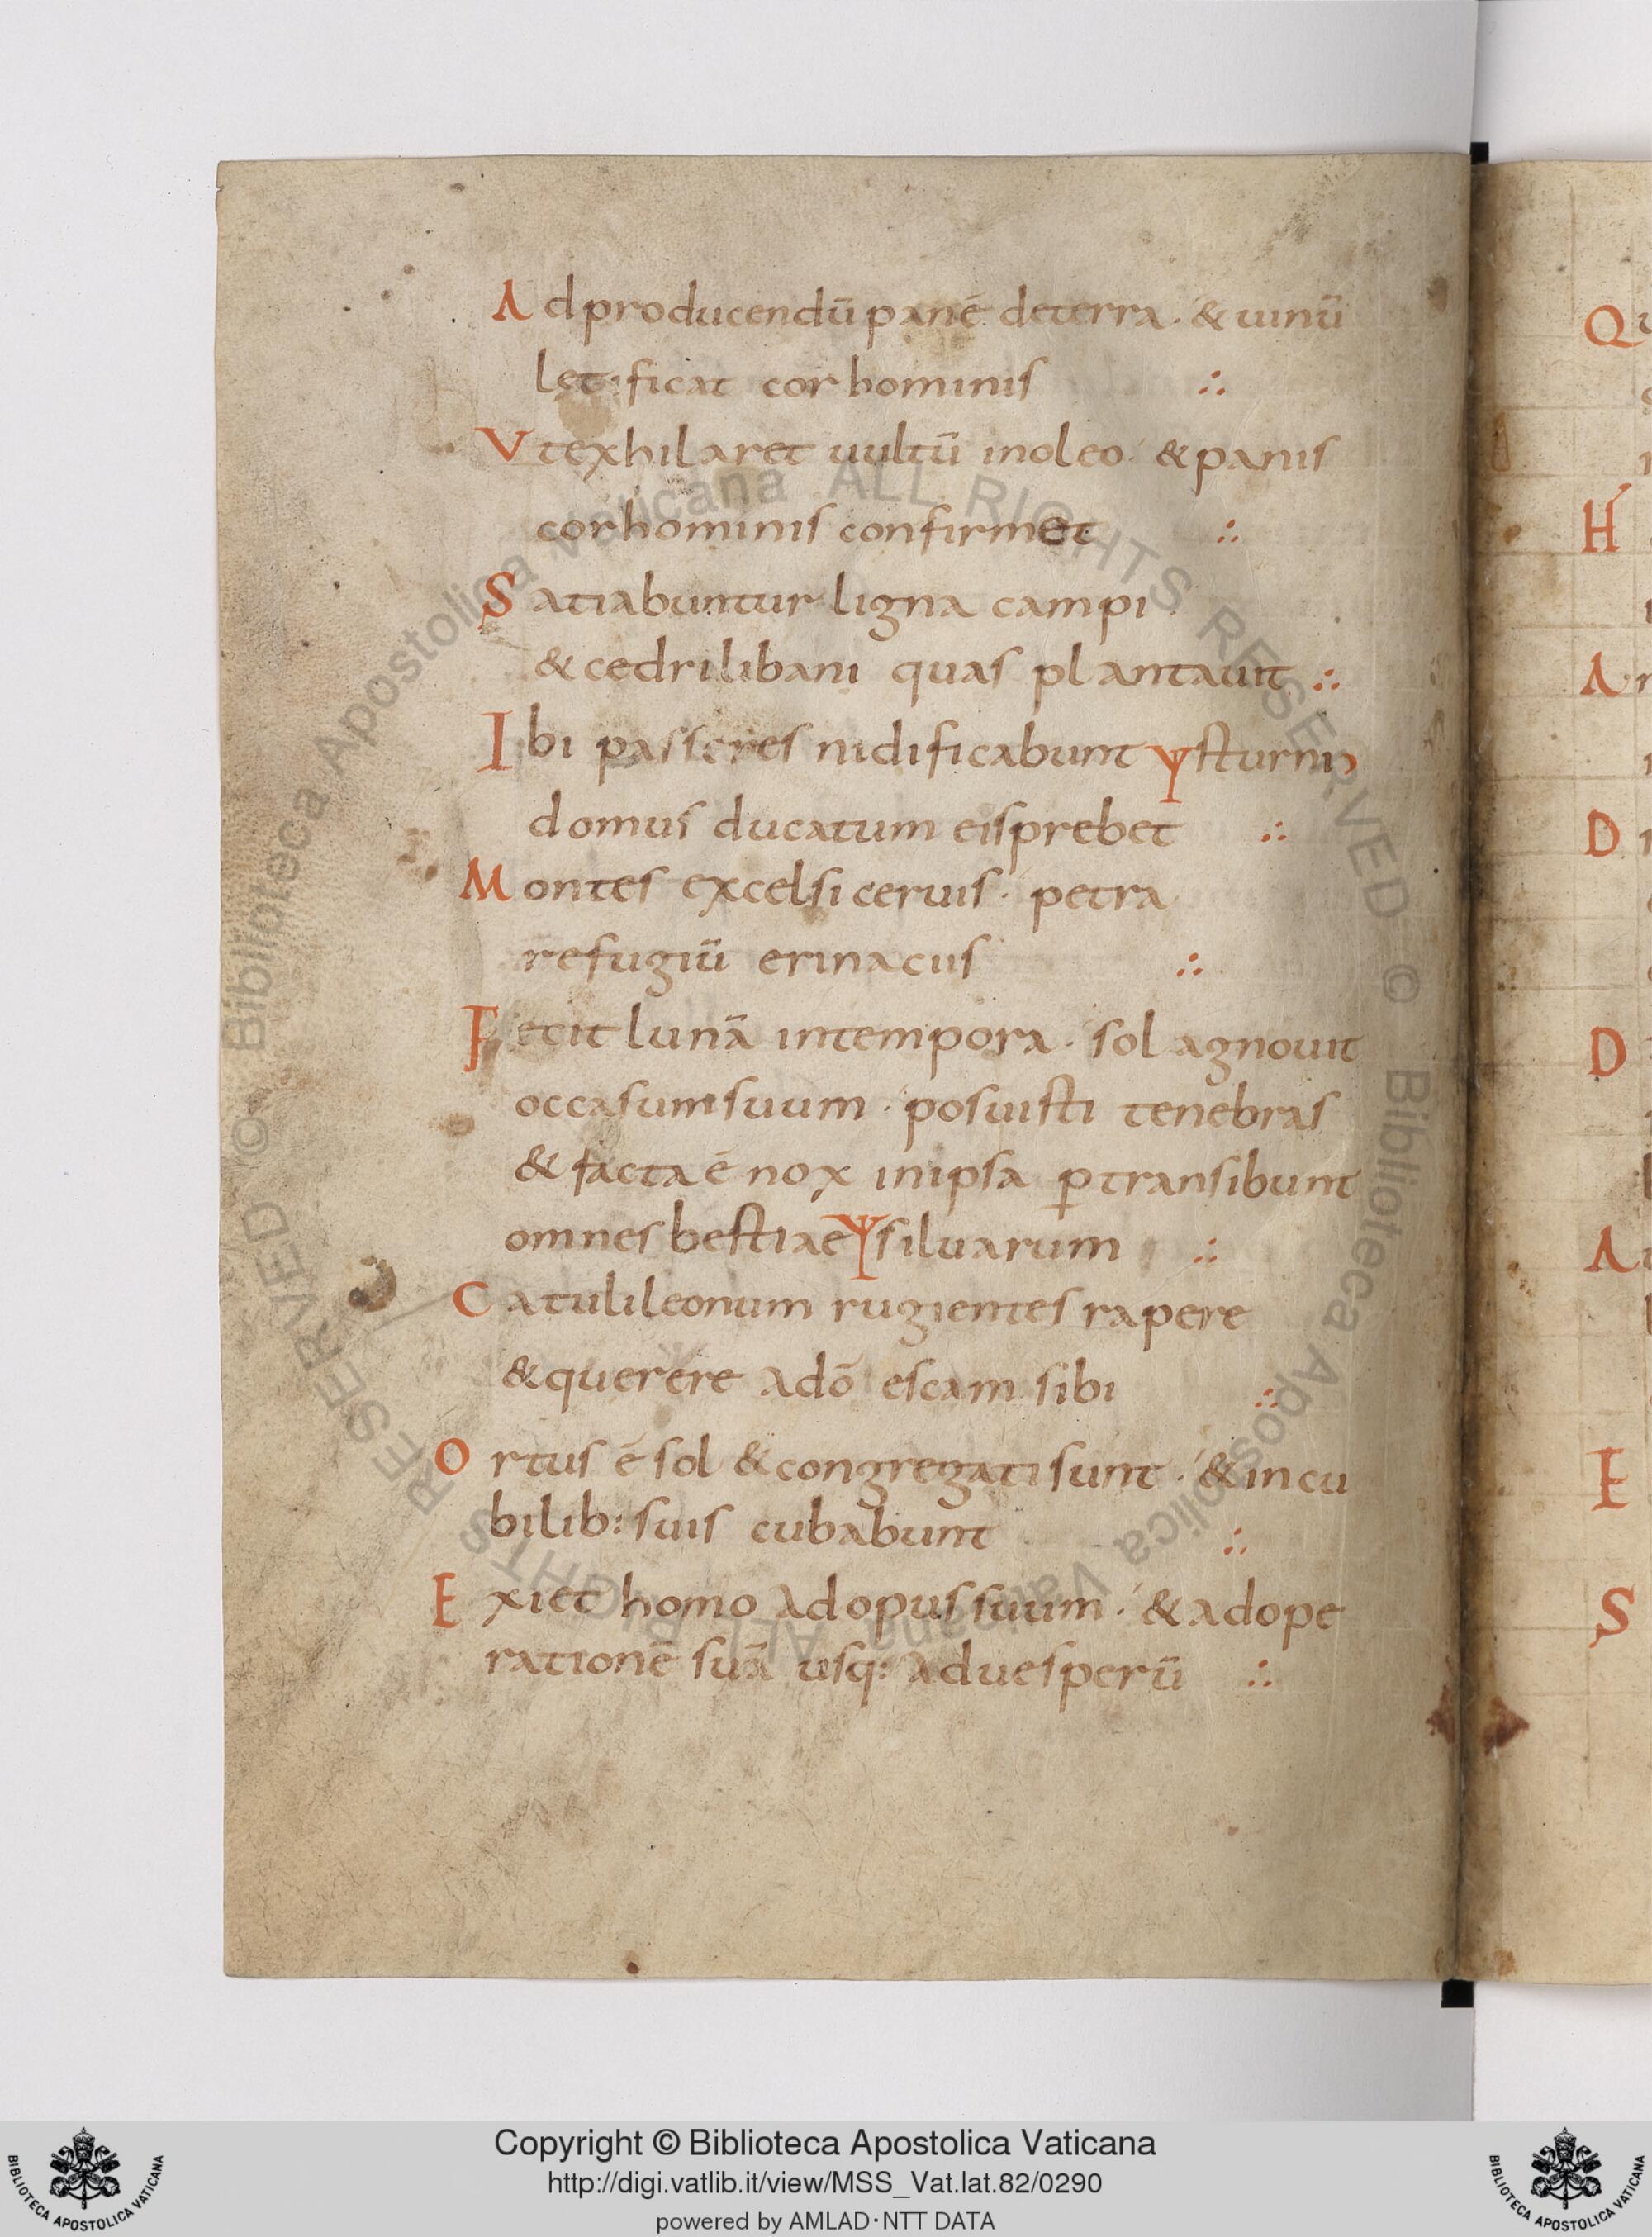 Adproducendū panē deterra · & uinū
letificat cor hominis ∴
Vtexhilaret uultū inoleo · & panis
corhominis confirmet ∴
Satiabuntur ligna campi ·
& cedrilibani quas plantauit ∴
Ibi passeres nidificabunt Ψ sturni
domus ducatum eisprebet ∴
Montes excelsi ceruis · petra
refugiū erinacus ∴
Fecit lunā intempora · sol agnouit
occasumsuum · posuisti tenebras
& facta ē nox inipsa ꝑtransibunt
omnes bestiae Ψ siluarum ∴
Catulileonum rugientes rapere
& querere adō escam sibi ∴
Ortus ē sol & congregatisunt · & incu
bilib: suis cubabunt ∴
Exiet homo adopussuum · & adope
rationē suā usq: aduesperū ∴
Q
H
A
D
D
A
E
S
© Biblioteca Apostolica Vaticana ALL RIGHTS RESERVED © Biblioteca Apostolica Vaticana ALL RIGHTS RESERVED
Copyright © Biblioteca Apostolica Vaticana
http://digi.vatlib.it/view/MSS_Vat.lat.82/0290
powered by AMLAD·NTT DATA
BIBLIOTECA APOSTOLICA VATICANA
BIBLIOTECA APOSTOLICA VATICANA